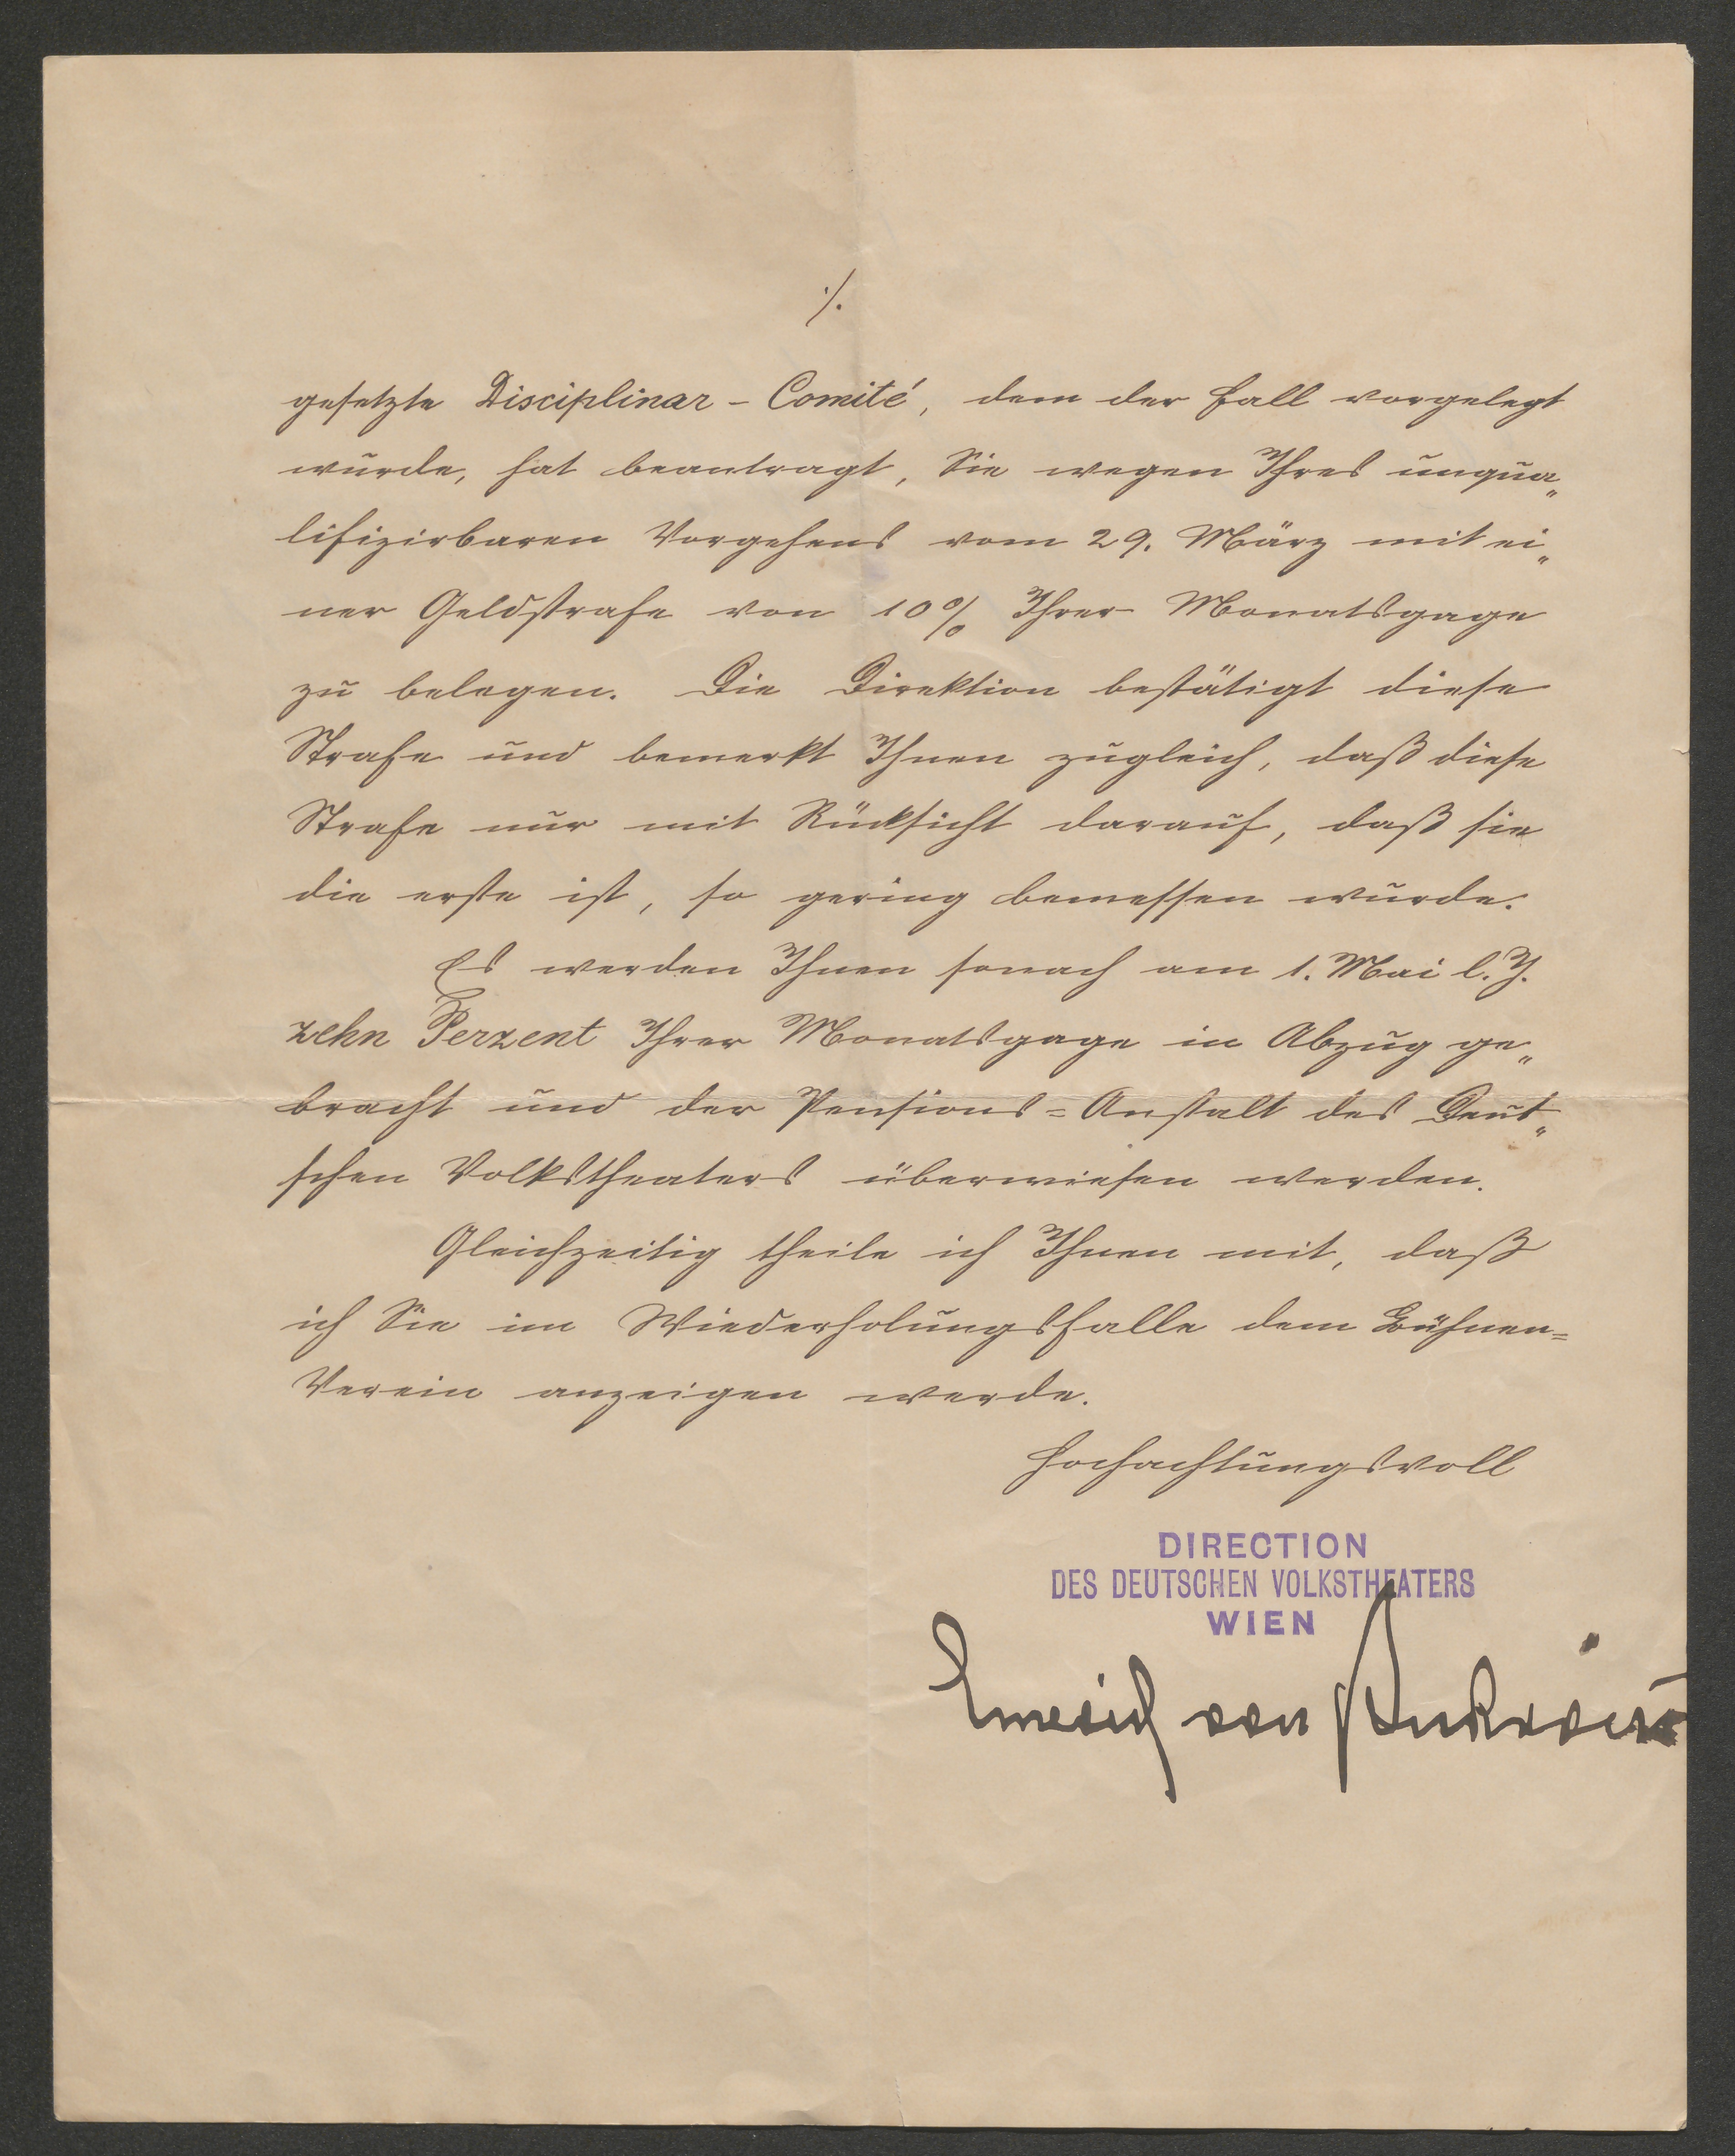 ./.
gesetzte Disciplinar - Comité, dem der Fall vorgelegt
wurde, hat beantragt, Sie wegen Ihres unqua„
lifizirbaren Vorgehens vom 29. März mit ei„
ner Geldstrafe von 10% Ihrer Monatsgage
zu belegen. Die Direktion bestätigt diese
Strafe und bemerkt Ihnen zugleich, daß diese
Strafe nur mit Rücksicht darauf, daß sie
die erste ist, so gering bemessen wurde.
Es werden Ihnen sonach am 1. Mai l. J.
zehn Perzent Ihrer Monatsgage in Abzug ge„
bracht und der Pensions=Anstalt des Deut„
schen Volkstheaters überwiesen werden.
Gleichzeitig theile ich Ihnen mit, daß
ich Sie im Wiederholungsfalle dem Bühnen=
Verein anzeigen werde.
Hochachtungsvoll
DIRECTION
DES DEUTSCHEN VOLKSTHEATERS
WIEN
Emerich von Bukovics